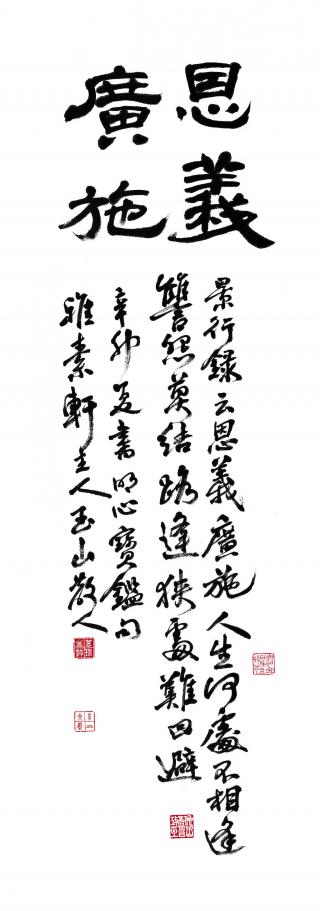 恩義
廣施
景行錄云恩義廣施人生何處不相逢
讐怨莫結路逢狹處難回避
辛卯夏書明心寶鑑句
雅素軒主人玉山散人